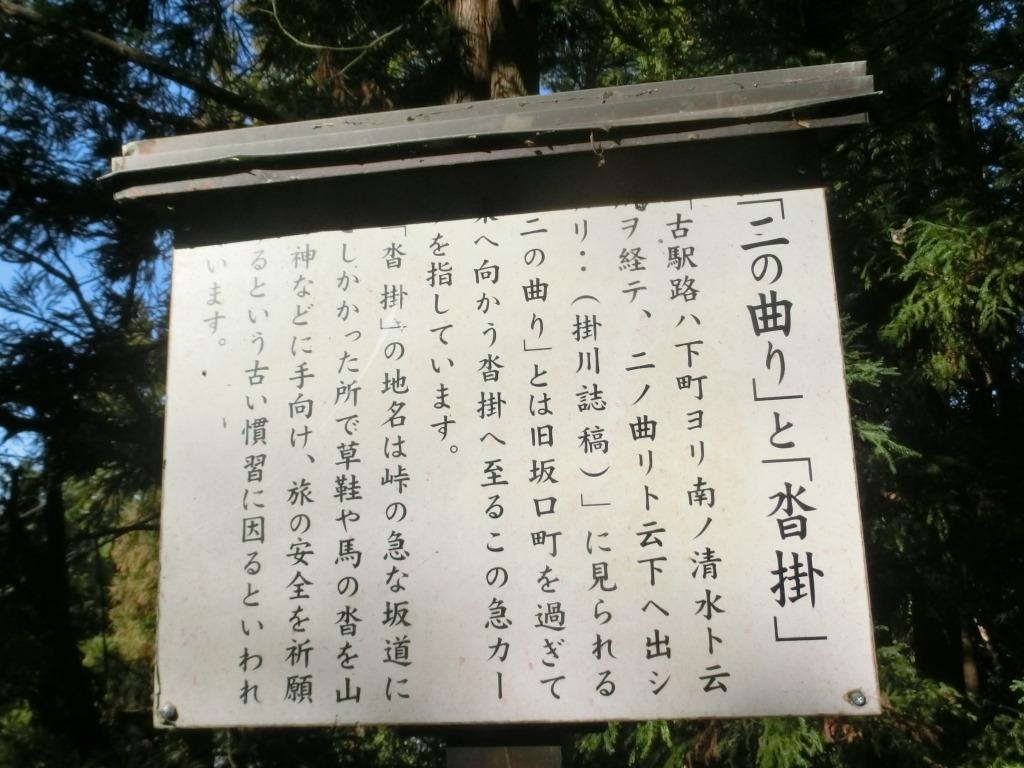 「二の曲り」と「沓掛」
「古駅路ハ下町ヨリ南ノ清水ト云
ヲ経テ、二ノ曲リト云下ヘ出シ
リ‥(掛川誌稿)」に見られる
二の曲り」とは旧坂口町を過ぎて
へ向かう沓掛へ至るこの急カー
を指しています。
「沓掛」の地名は峠の急な坂道に
しかかった所で草鞋や馬の沓を山
神などに手向け、旅の安全を祈願
るという古い慣習に因るといわれ
います。